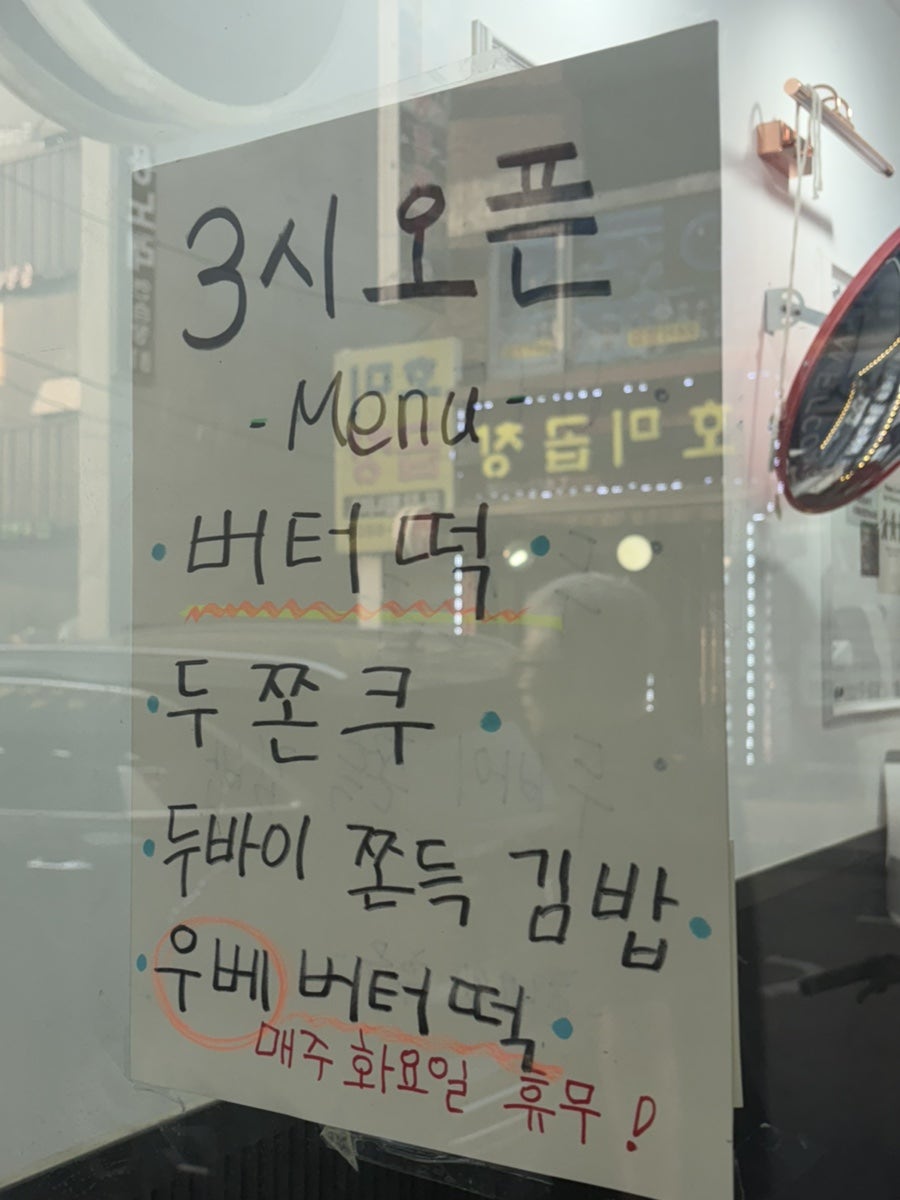 3시 오픈
- Menu -
• 버터떡 •
• 두쫀쿠 •
• 두바이 쫀득 김밥 •
• 우베 버터떡 •
매주 화요일 휴무!
호미곱창